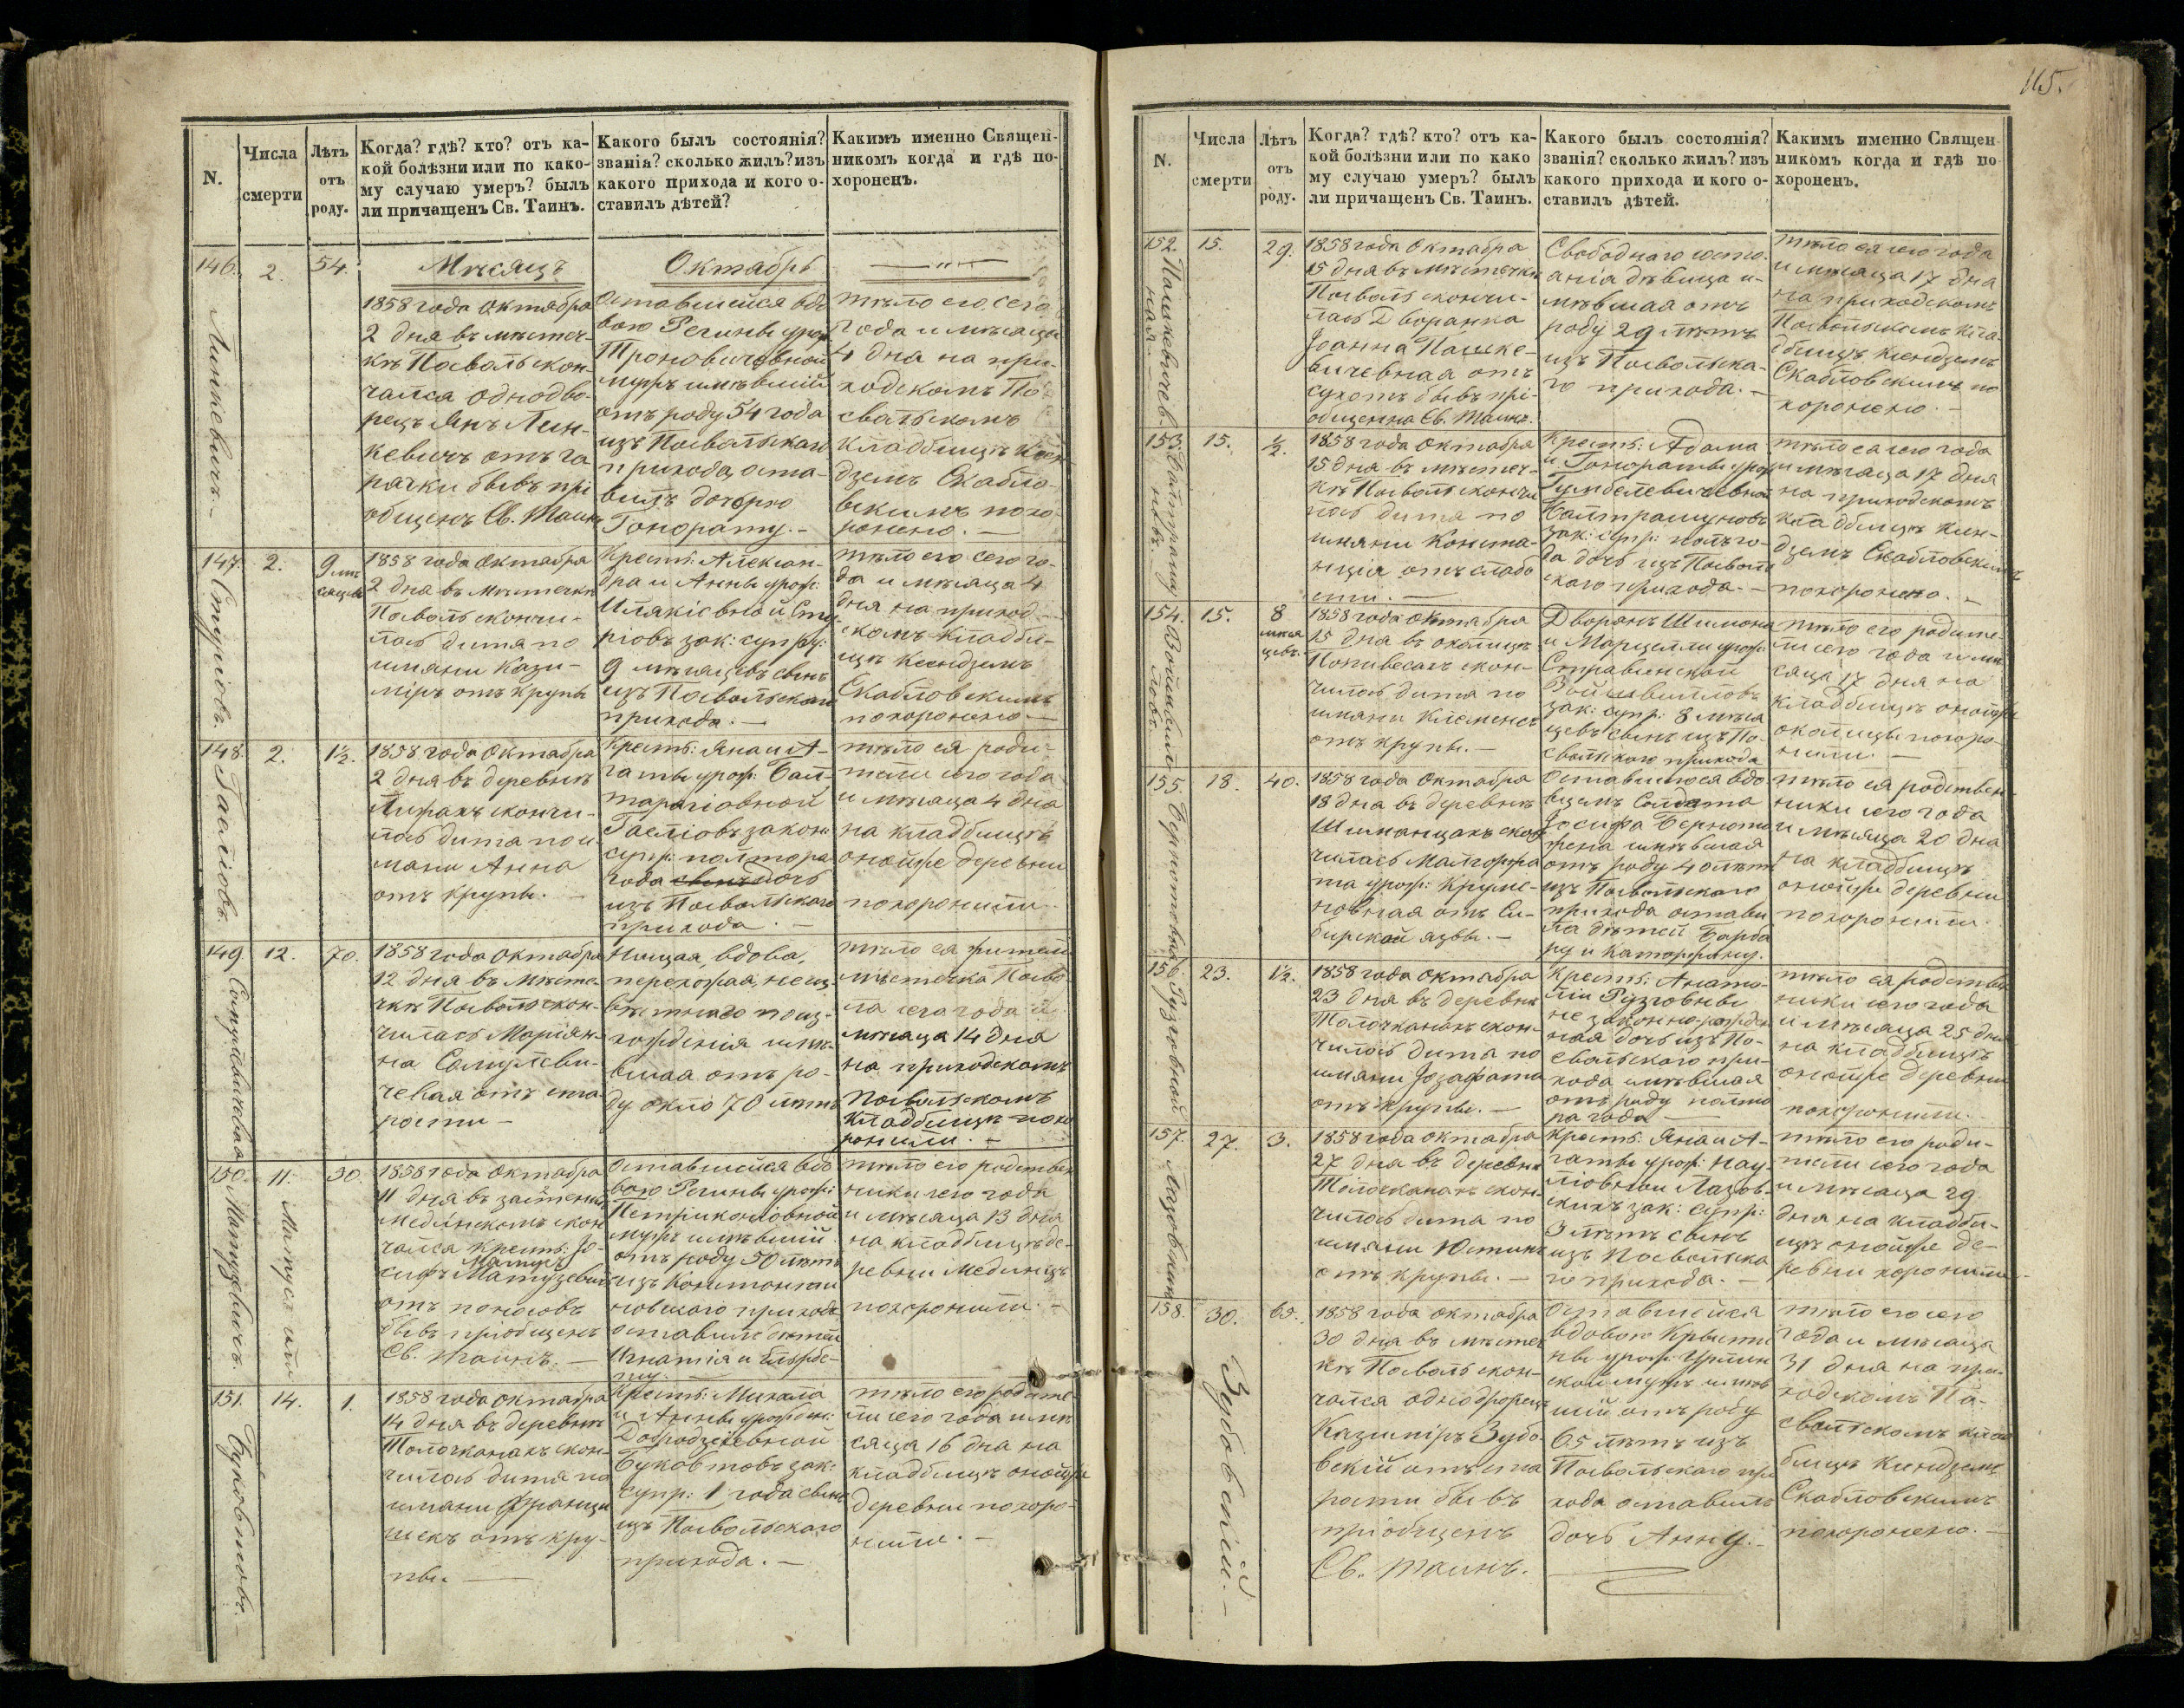 165.
N.
Числа смерти
Лѣтъ отъ роду.
Когда? гдѣ? кто? отъ ка-
кой болѣзни или по како-
му случаю умеръ? былъ
ли причащенъ Св. Таинъ.
Какого былъ состоянія?
званія? сколько жилъ? изъ
какого прихода и кого о-
ставилъ дѣтей?
Какимъ именно Священ-
никомъ когда и гдѣ по-
хороненъ.
Мѣсяцъ Октябрь
146.
Линкевичъ.
2.
54.
1858 года Октября
2 дня въ мѣстеч-
кѣ Посволь скон-
чался однодво-
рецъ Янъ Лин-
кевичъ отъ го
рячки бывъ прі
общенъ Св. Таинъ
Оставшейся вдо
вою Регины урож
мужъ имѣвшій
отъ роду 54 года
изъ Посвольскаго
прихода оста-
вилъ дочерю
Гонорату. —
тѣло его сего
года и мѣсяца
4 дня на при-
ходскомъ По
свольскомъ
кладбищѣ Ксен
дземъ Скабло-
вскимъ похо-
ронено. —
147.
2.
9 мѣ
сяцевъ
1858 года Октября
2 дня въ мѣстечкѣ
Посволь скончи-
лось дитя по
имяни Кази-
міръ отъ крупы
Крест: Алексан-
дра и Анны урож:
зак: супру:
9 мѣсяцевъ сынъ
изъ Посвольскаго
прихода. —
тѣло его сего го-
да и мѣсяца 4
дня на приход-
скомъ кладби-
щѣ Ксендземъ
Скабловскимъ
похоронено —
148.
2.
1½.
1858 года Октября
2 дня въ деревнѣ
скончи-
лось дитя по и
мяни Анна
отъ крупы. —
Крест: Яна и А-
гаты урож:
закон:
супр: полтора
года дочь
изъ Посвольскаго
прихода. —
тѣло ея роди-
тели сего года
и мѣсяца 4 дня
на кладбищѣ
онойже деревни
похоронили.
149.
12.
70.
1858 года Октября
12 дня въ мѣсте-
чкѣ Посволь скон-
чилась Маріян-
на Самулеви-
чевая отъ ста
рости —
Нищая, вдова,
перехожая, неиз-
вѣстнаго проис-
хожденія имѣ-
вшая отъ ро-
ду около 70 лѣтъ
тѣло ея жители
мѣстечка Посво-
ля сего года и
мѣсяца 14 дня
на приходскомъ
Посвольскомъ
кладбищѣ похо
ронили. —
150.
Матузевичъ.
Матусъ
11.
30.
1858 года Октября
11 дня въ застенкѣ
скон
чался Крест: Іо-
сифъ Матузевичъ
отъ поносовъ
бывъ пріобщенъ
Св. таинъ. —
Оставшейся вдо
вою Регины урож:
мужъ имѣвшій
отъ роду 30 лѣтъ
изъ Константи
новскаго прихода
оставилъ дѣтей
Игнатія и Ельжбе-
ту.
тѣло его родствен
ники сего года
и мѣсяца 13 дня
на кладбищѣ де-
ревни
похоронили. —
151.
14.
1.
1858 года Октября
14 дня въ деревнѣ
Толочканахъ скон-
чилось дитя по
имяни Францы
шекъ отъ кру-
пы —
Крест: Михала
и Анны урожден:
зак:
супр: 1 года сынъ
изъ Посвольскаго
прихода. —
тѣло его родите
ли сего года и мѣ
сяца 16 дня на
кладбищѣ онойже
деревни похоро-
нили. —
N.
Числа смерти
Лѣтъ отъ роду.
Когда? гдѣ? кто? отъ ка-
кой болѣзни или по како
му случаю умеръ? былъ
ли причащенъ Св. Таинъ.
Какого былъ состоянія?
званія? сколько жилъ? изъ
какого прихода и кого о-
ставилъ дѣтей.
Какимъ именно Священ-
никомъ когда и гдѣ по
хороненъ.
152.
Пашкевичев-
ная
15.
29.
1858 года Октября
15 дня въ мѣстечкѣ
Посволь скончи-
лась Дворянка
Іоанна Пашке-
вичевная отъ
сухотъ бывъ прі-
общенна Св. Таинъ.
Свободнаго состо-
анія дѣвица и-
мѣвшая отъ
роду 29 лѣтъ
изъ Посвольска-
го прихода. —
тѣло ея сего года
и мѣсяца 17 дня
на приходскомъ
Посвольскомъ кла-
дбищѣ ксендземъ
Скабловскимъ по
хоронено. —
153.
15.
½.
1858 года Октября
15 дня въ мѣстеч-
кѣ Посволь скончи
лось дитя по
имяни Конста-
нція отъ слабо
сти. —
Крест: Адама
и Гонораты урож
зак: супр: полъ го-
да дочь изъ Посволь
скаго прихода. —
тѣло ея сего года
и мѣсяца 17 дня
на приходскомъ
кладбищѣ ксен-
дземъ Скабловскимъ
похоронено. —
154.
15.
8
мѣся
цевъ.
1858 года Октября
15 дня въ околицѣ
скон-
чилось дитя по
имяни Клеменсъ
отъ крупы. —
Дворянъ Шимона
и Марцелли урож:
зак: супр: 8 мѣся
цевъ сынъ изъ По-
свольскаго прихода
тѣло его родите-
ли сего года и мѣ
сяца 17 дня на
кладбищѣ онойже
околицы похоро-
нили. —
155.
18.
40.
1858 года Октября
18 дня въ деревнѣ
Шиманцахъ скон
чилась Малгоржа
та урож:
отъ Си-
бирской язвы. —
Оставшегося вдо
вцемъ Солдата
Іосифа
жена имѣвшая
отъ роду 40 лѣтъ
изъ Посвольскаго
прихода остави
ла дѣтей Барба
ру и Катаржину.
тѣло ея родствен-
ники сего года
и мѣсяца 20 дня
на кладбищѣ
онойже деревни
похоронили.
156.
23.
1½.
1858 года Октября
23 дня въ деревнѣ
Толочканахъ скон-
чилось дитя по
имяни Іозафата
отъ крупы. —
Крест: Анато-
ліи
не законно-рожден
ная дочь изъ По-
свольскаго при-
хода имѣвшая
отъ роду полто
ра года —
тѣло ея родствен
ники сего года
и мѣсяца 25 дня
на кладбищѣ
онойже деревни
похоронили. —
157.
27.
3.
1858 года Октября
27 дня въ деревнѣ
Толочканахъ скон-
чилось дитя по
имяни Юстинъ
отъ крупы. —
Крест: Яна и А-
гаты урож:
зак: супр:
3 лѣтъ сынъ
изъ Посвольска
го прихода. —
тѣло его роди-
тели сего года
и мѣсяца 29
дня на кладби-
щѣ онойже де-
ревни хоронили
158.
Зубовскій. —
30.
65.
1858 года Октября
30 дня въ мѣстеч
кѣ Посволь скон-
чался однодворецъ
Казиміръ Зубо-
вскій отъ ста
рости бывъ
пріобщенъ
Св. таинъ.
Оставшейся
вдовою Крысти
ны урож:
мужъ имѣв
шій отъ роду
65 лѣтъ изъ
Посвольскаго при
хода оставилъ
дочь Анну. —
тѣло его сего
года и мѣсяца
31 дня на при-
ходскомъ По-
свольскомъ клад
бищѣ Ксендземъ
Скабловскимъ
похоронено. —